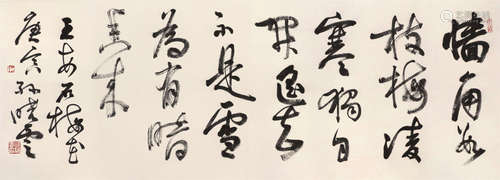 墙角数
枝梅凌
寒獨自
開遥知
不是雪
為有暗
香来
王安石梅花
庚寅孫曉雲